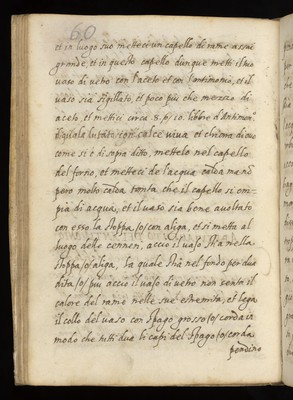 60
et in luogo suo metteci un capello di rame assai
grande, et in questo capello dunque metti il tuo
vaso di vetro con l'aceto et con l'antimonio, et il
vaso sia sigillato, et poco piu che mezzo di
aceto, et metteci circa 8. ho 10. libre d'Antimon.º
sigilalo lutato con calce viva et chiara di ovo
come si è di sopra ditto, mettelo nel capello
del forno, et metteci de l'acqua calda ma nō
pero molto calda tanta che il capello si em=
pia di acqua, et il vaso sia bene avoltato
con esso la stoppa, ho aliga, et si metta al
luogo delle cenneri, accio il vaso stia nella
stoppa ho aliga, la quale stia nel fondo per dua
dita ho piu accio il vaso di vetro non senta il
calore del rame nelle sue estremita, et lega
il collo del vaso con spago grosso ho corda in
modo che tutti dua li capi del spago ho corda
pendino